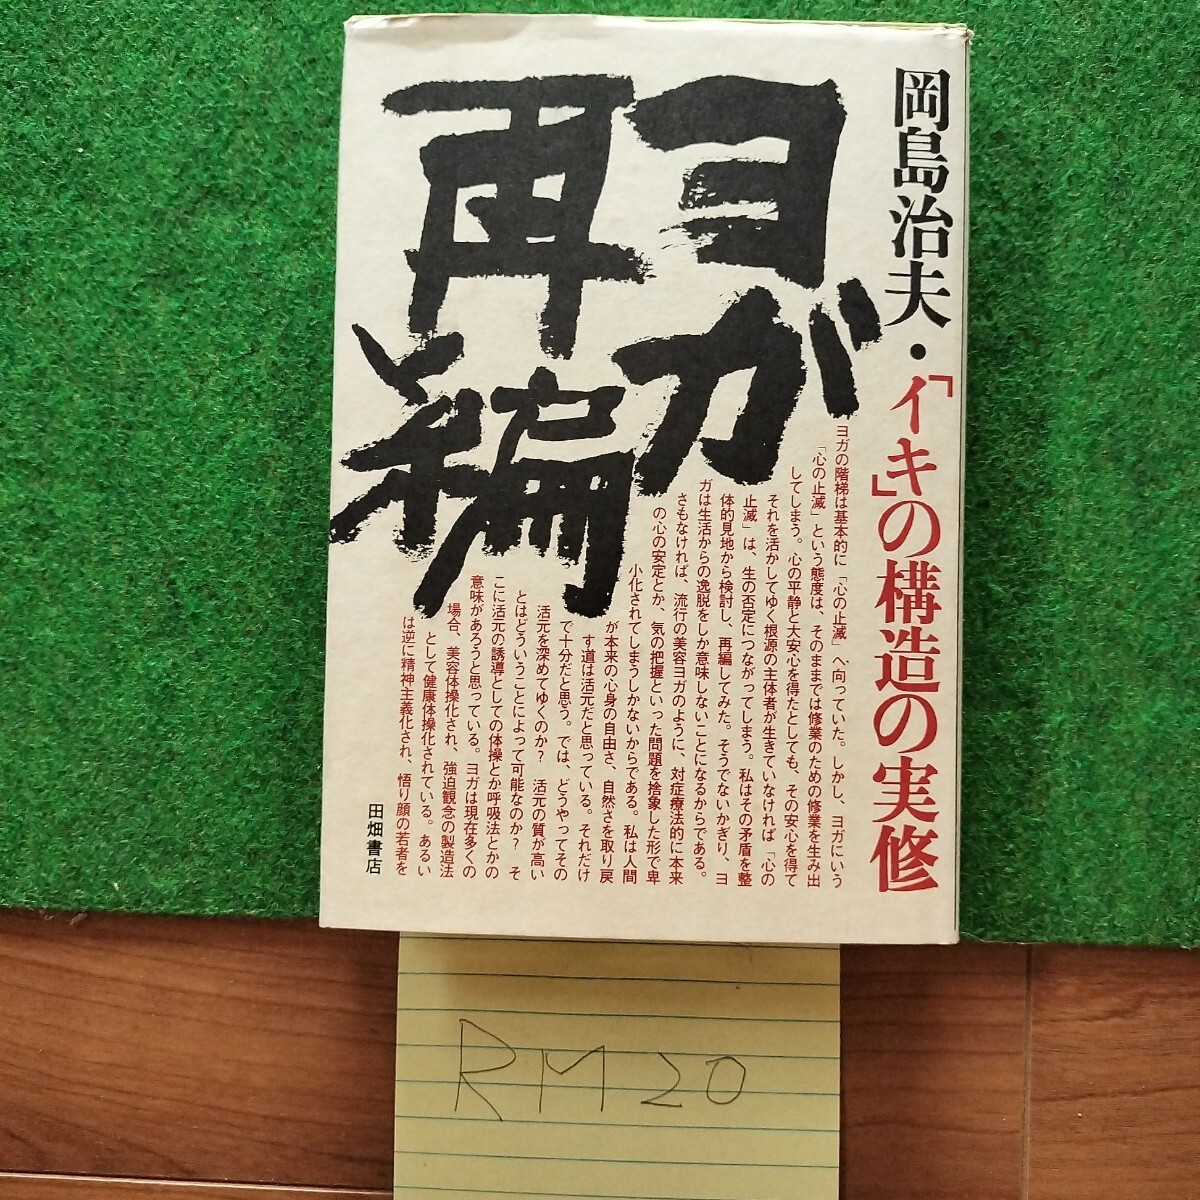 岡島治夫・「イキ」の構造の実修
ヨガ
再編
ヨガの階梯は基本的に「心の止滅」へ向っていた。しかし、ヨガにいう
「心の止滅」という態度は、そのままでは修業のための修業を生み出
してしまう。心の平静と大安心を得たとしても、その安心を得て
それを活かしてゆく根源の主体者が生きていなければ「心の
止滅」は、生の否定につながってしまう。私はその矛盾を整
体的見地から検討し、再編してみた。そうでないかぎり、ヨ
ガは生活からの逸脱をしか意味しないことになるからである。
さもなければ、流行の美容ヨガのように、対症療法的に本来
の心の安定とか、気の把握といった問題を捨象した形で卑
小化されてしまうしかないからである。私は人間
が本来の心身の自由さ、自然さを取り戻
す道は活元だと思っている。それだけ
で十分だと思う。では、どうやってその
活元を深めてゆくのか？ 活元の質が高い
とはどういうことによって可能なのか？ そ
こに活元の誘導としての体操とか呼吸法とかの
意味があろうと思っている。ヨガは現在多くの
場合、美容体操化され、強迫観念の製造法
として健康体操化されている。あるい
は逆に精神主義化され、悟り顔の若者を
田畑書店
RM20